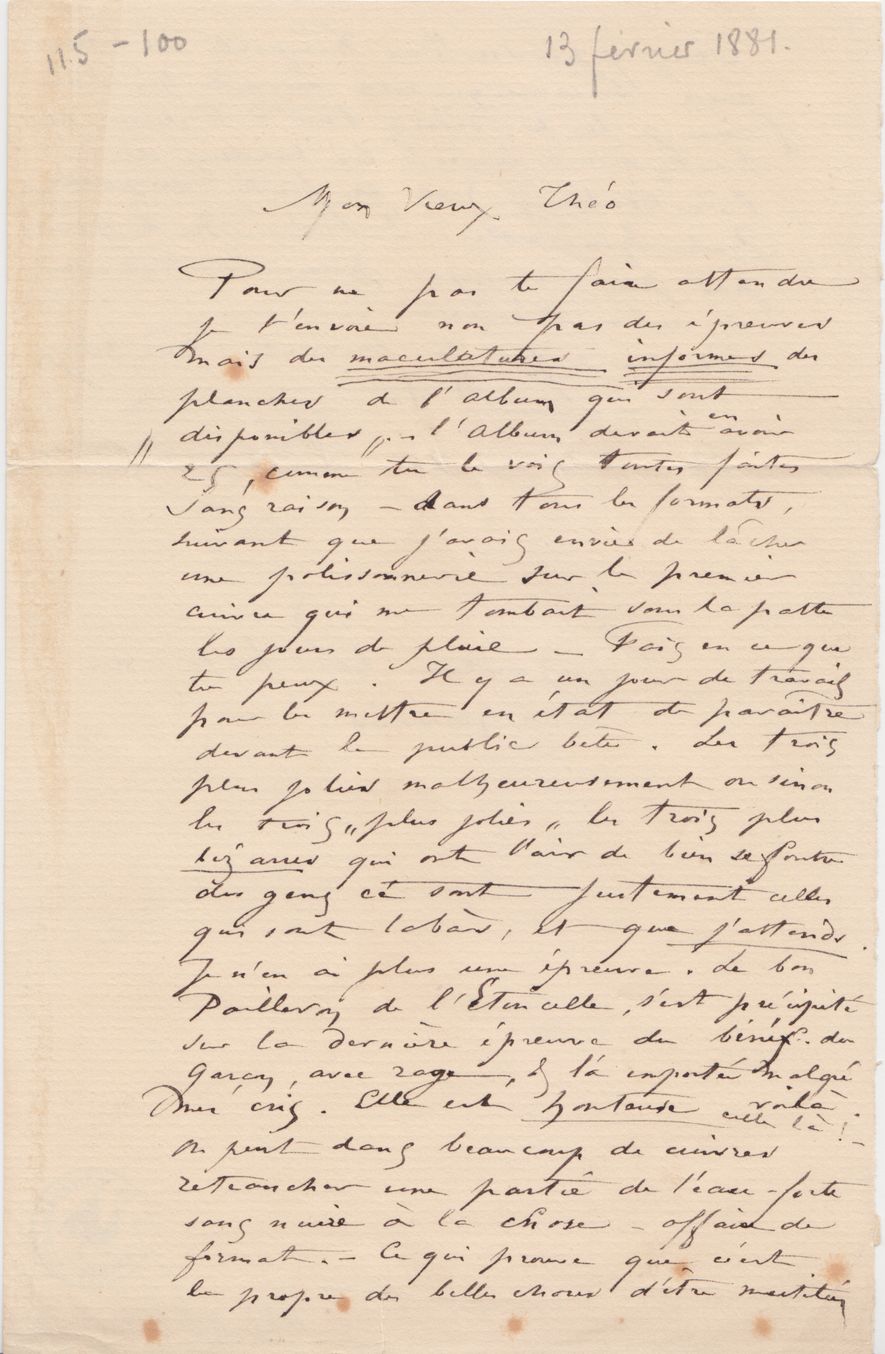 115-100
13 février 1881.
Mon Vieux Théo
Pour ne pas te faire attendre
je t'envoie non pas des épreuves
mais des maculatures informes des
planches de l'album qui sont
disponibles „ - l'album devait en avoir
„ 25, comme tu le vois toutes faites
sans raison - dans tous les formats,
suivant que j'avais envie de lâcher
une polissonnerie sur le premier
cuivre qui me tombait sous la patte
les jours de pluie - Fais en ce que
tu peux. Il y a un jour de travail
pour les mettre en état de paraître
devant le public bête. Les trois
plus jolies malheureusement ou sinon
les trois „plus jolies„ les trois plus
bizarres qui ont l'air de bien se foutre
des gens ce sont justement celles
qui sont labàs, et que j'attends.
Je n'en ai plus une épreuve. Le bon
Pailleron de l'Etincelle, s'est précipité
sur la dernière épreuve du bénéf. du
Garçon, avec rage, & l'a emportée malgré
mes cris. Elle est honteuse celle là! voilà.
on peut dans beaucoup de cuivres
retrancher une partie de l'eau-forte
sans nuire à la chose - affaire de
format. - Ce qui prouve que c'est
le propre des belles choses d'être mutilées